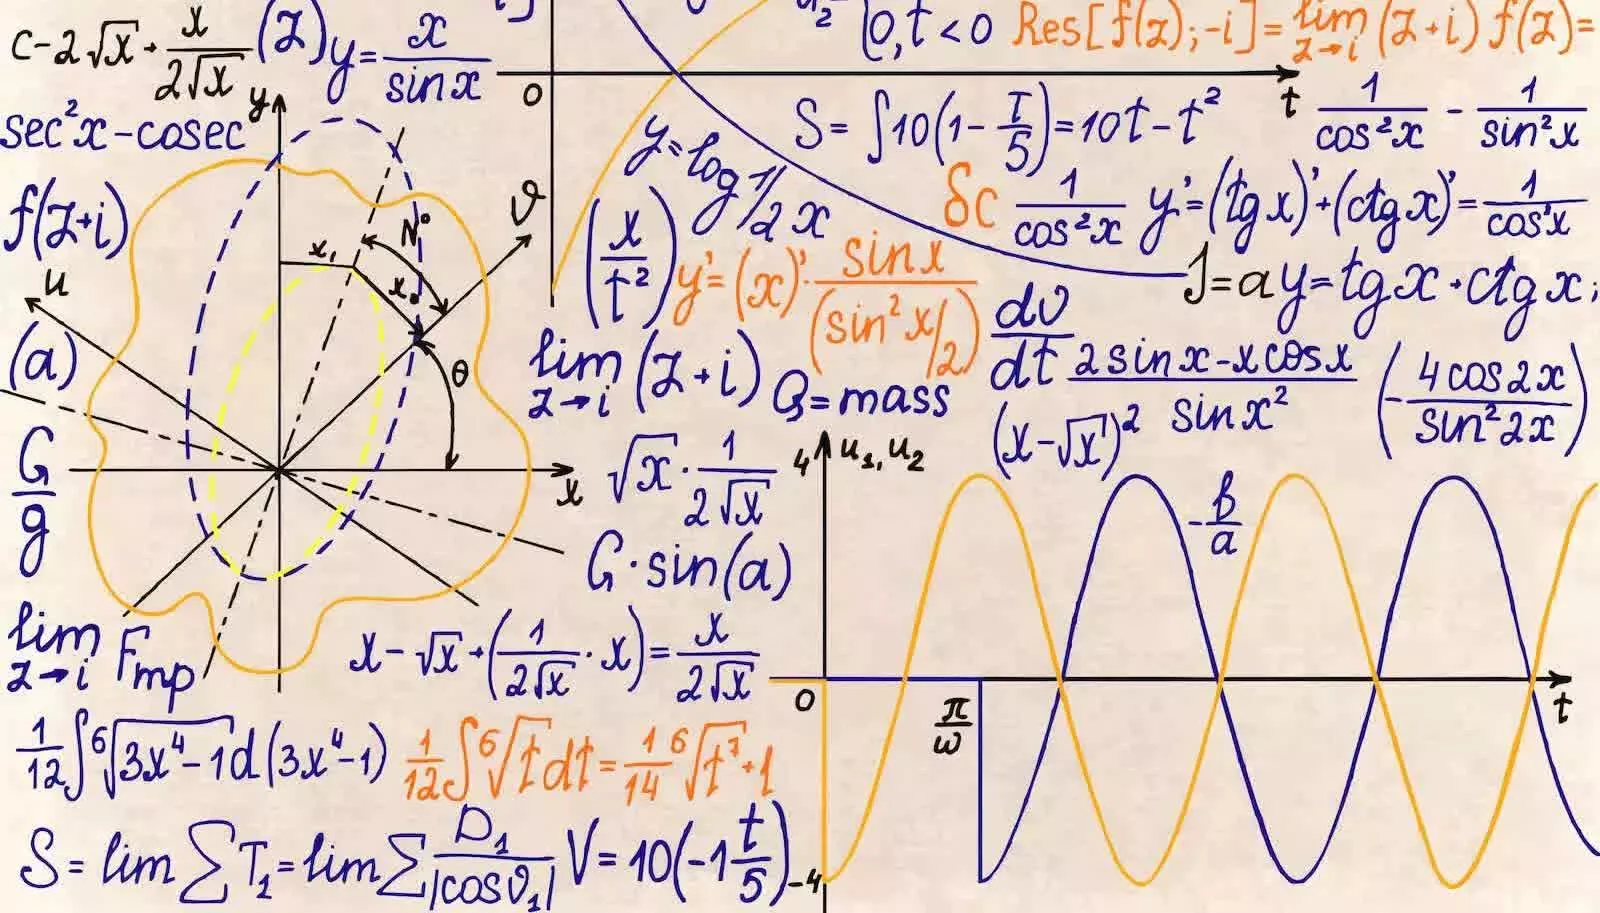 C-2√x+x/(2√x)
(z)
y=x/sin x
0
u₂
[0,t<0
Res[f(z);-i]=lim z→i (z+i)f(z)=
t
y
sec²x-cosec
S=∫10(1-T/5)=10t-t²
1/cos²x - 1/sin²x
y=log1/2x
f(z+i)
δc
1/cos²x
y'=(tgx)'+(ctgx)'=1/cos²x
ϑ
N°
x₁
(x/t²)
y'=(x)'·sinx/(sin²x/2)
J=a
y=tgx+ctgx;
u
x₀
dv/dt
(a)
θ
lim z→i (z+i)
Q=mass
2sinx-xcosx/sinx²
(-4cos2x/sin²2x)
(x-√x)²
G/g
x
√x·1/(2√x)
4
u₁,u₂
-b/a
G·sin(a)
lim z→i
Fmp
x-√x+(1/(2√x)·x)=x/(2√x)
0
π/ω
t
1/12∫⁶√(3x⁴-1)d(3x⁴-1)
1/12∫⁶√t dt=1/14 ⁶√t⁷+1
S=lim∑T₁=lim∑D₁/|cosϑ₁|
V=10(-1t/5)
-4